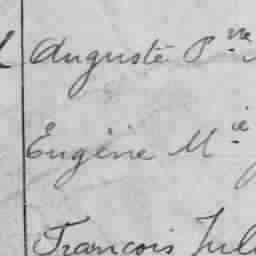 Auguste P^ne
Eugène M^ie
François Jul